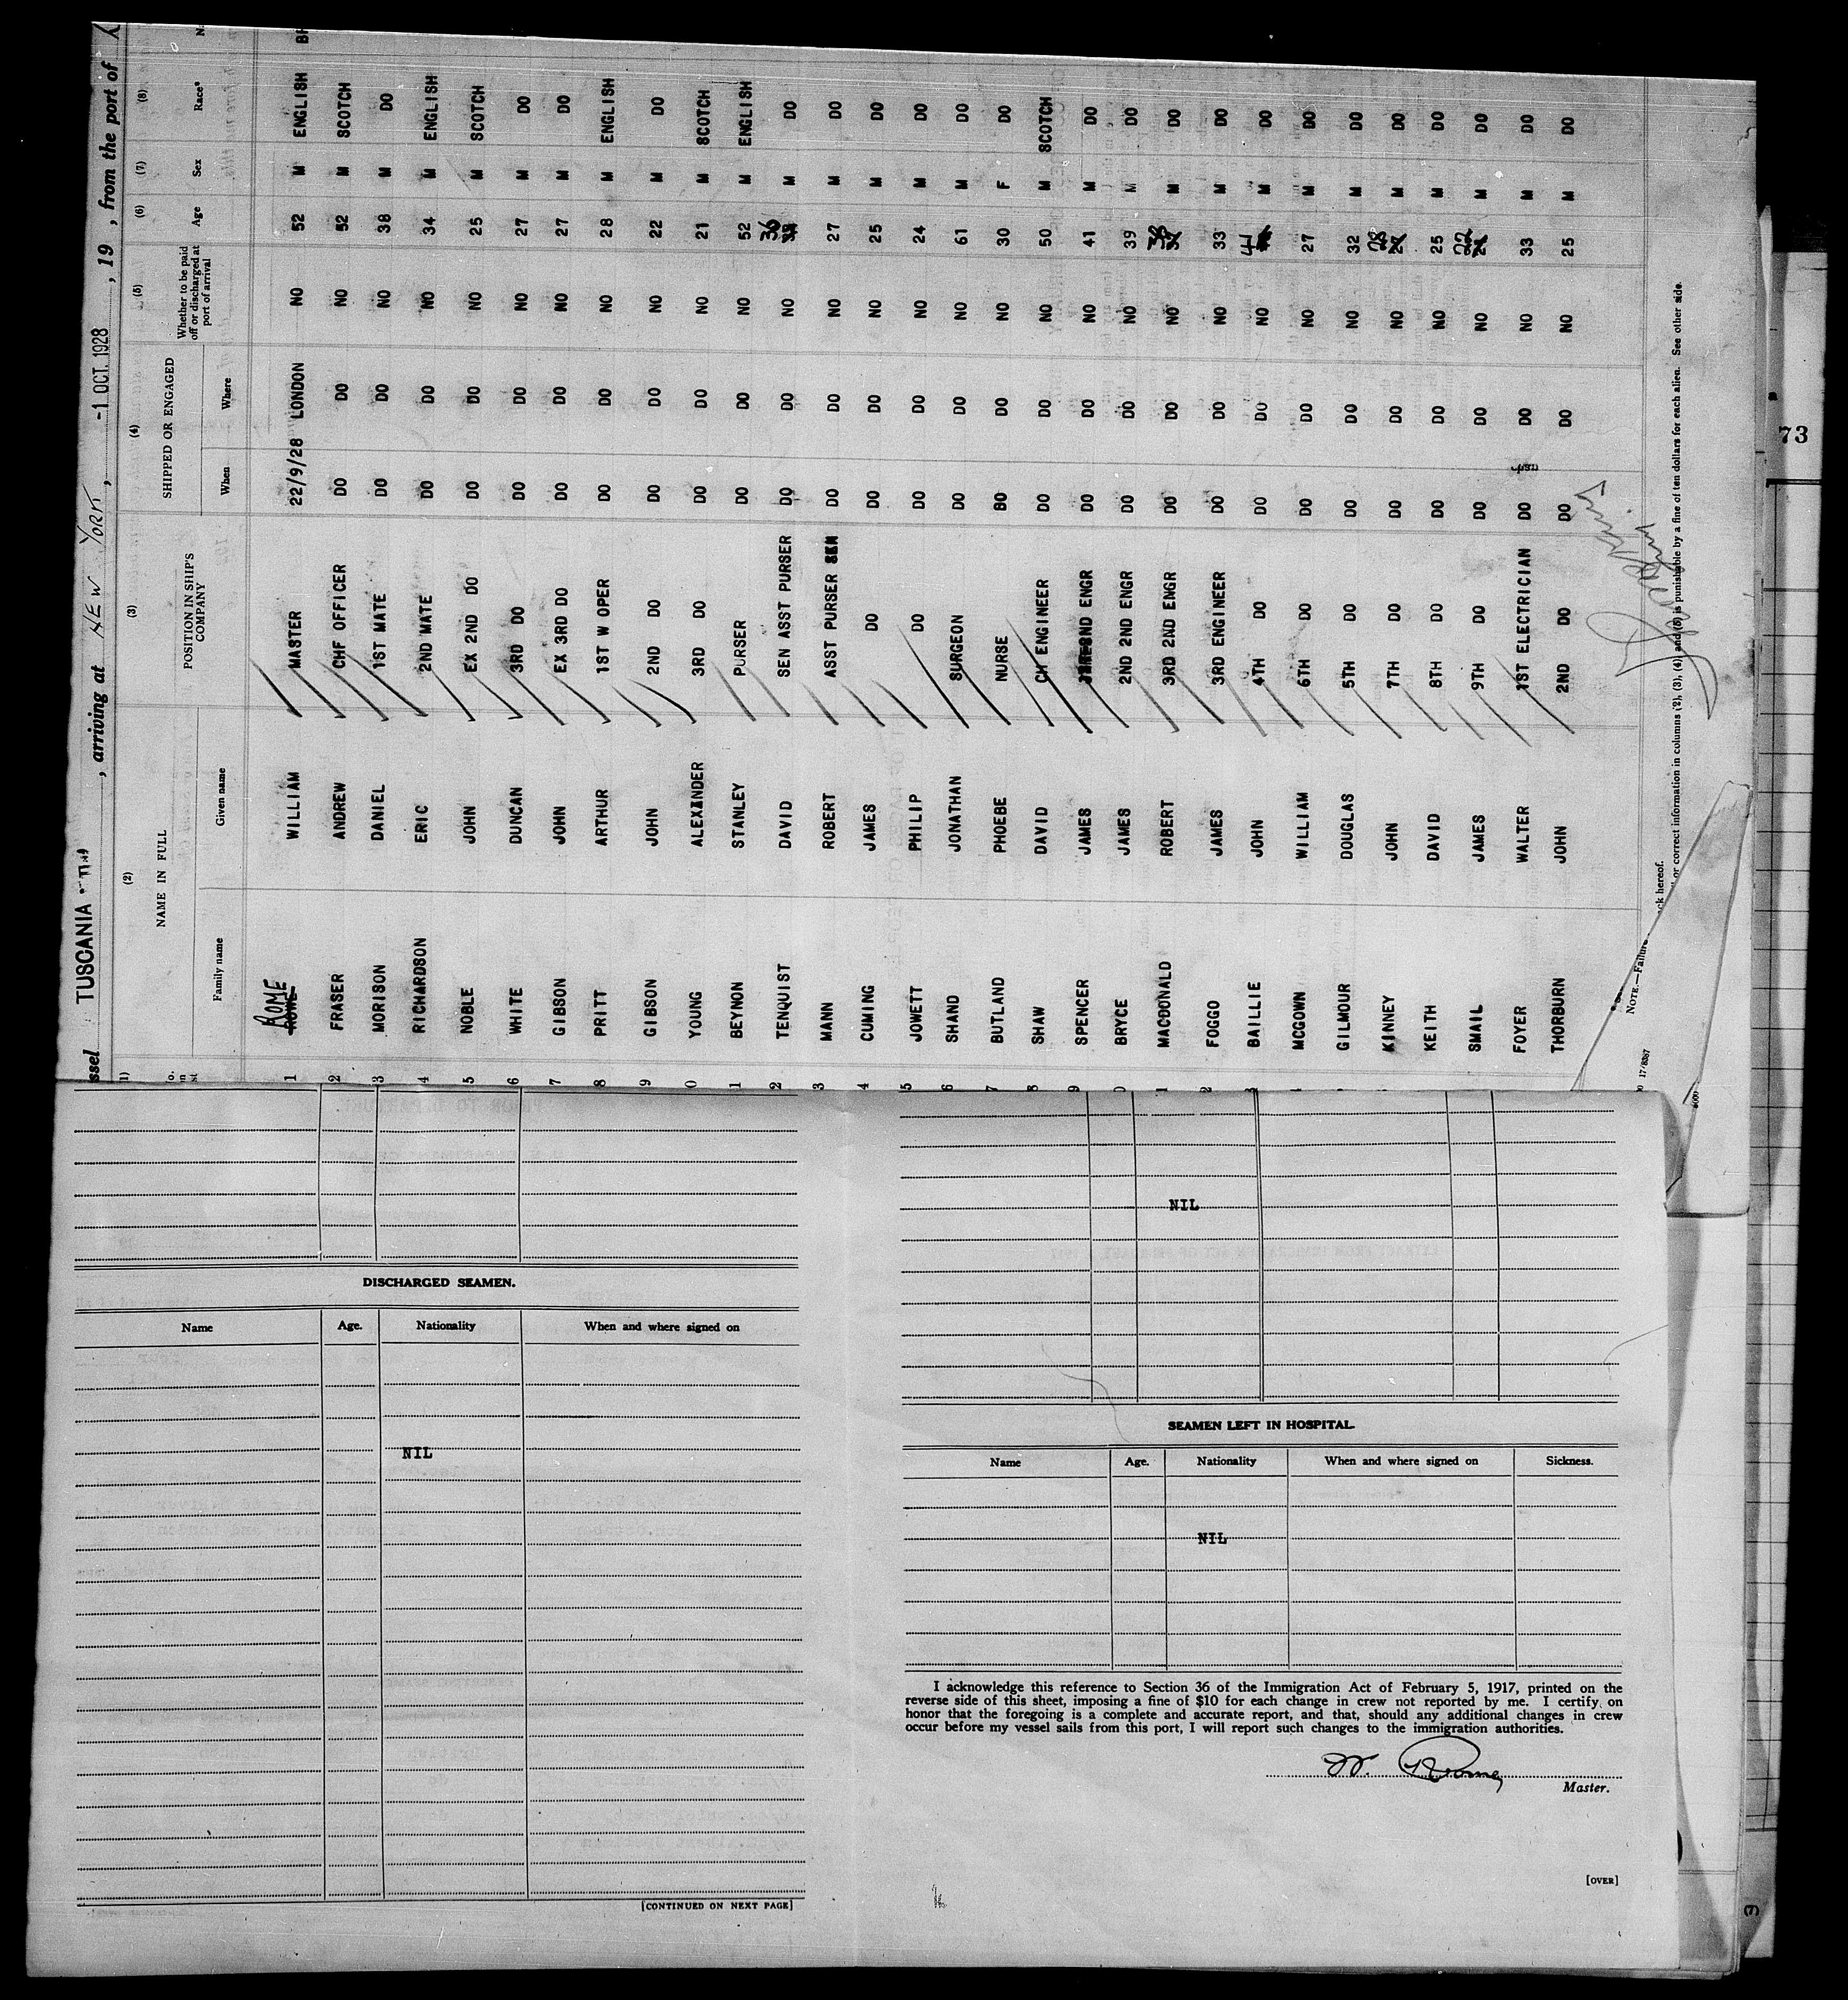 ssel TUSCANIA , arriving at NEW YORK , -1 OCT. 1928 , 19 , from the port of
(2) (3) (4) (5) (6) (7) (8)
NAME IN FULL POSITION IN SHIP'S COMPANY SHIPPED OR ENGAGED Whether to be paid off or discharged at port of arrival Age Sex Race*
Family name Given name When Where
1 ROME WILLIAM MASTER 22/9/28 LONDON NO 52 M ENGLISH BR
2 FRASER ANDREW CHF OFFICER DO DO NO 52 M SCOTCH
3 MORISON DANIEL 1ST MATE DO DO NO 38 M DO
4 RICHARDSON ERIC 2ND MATE DO DO NO 34 M ENGLISH
5 NOBLE JOHN EX 2ND DO DO DO NO 25 M SCOTCH
6 WHITE DUNCAN 3RD DO DO DO NO 27 M DO
7 GIBSON JOHN EX 3RD DO DO DO NO 27 M DO
8 PRITT ARTHUR 1ST W OPER DO DO NO 28 M ENGLISH
9 GIBSON JOHN 2ND DO DO DO NO 22 M DO
0 YOUNG ALEXANDER 3RD DO DO DO NO 21 M SCOTCH
1 BEYNON STANLEY PURSER DO DO NO 52 M ENGLISH
2 TENQUIST DAVID SEN ASST PURSER DO DO NO 36 M DO
3 MANN ROBERT ASST PURSER DO DO NO 27 M DO
4 CUMING JAMES DO DO DO NO 25 M DO
5 JOWETT PHILIP DO DO DO NO 24 M DO
6 SHAND JONATHAN SURGEON DO DO NO 61 M DO
7 BUTLAND PHOEBE NURSE DO DO NO 30 F DO
8 SHAW DAVID CH ENGINEER DO DO NO 50 M SCOTCH
9 SPENCER JAMES 2ND ENGR DO DO NO 41 M DO
0 BRYCE JAMES 2ND 2ND ENGR DO DO NO 39 M DO
1 MACDONALD ROBERT 3RD 2ND ENGR DO DO NO 38 M DO
2 FOGGO JAMES 3RD ENGINEER DO DO NO 33 M DO
3 BAILLIE JOHN 4TH DO DO DO NO 41 M DO
MCGOWN WILLIAM 6TH DO DO DO NO 27 M DO
GILMOUR DOUGLAS 5TH DO DO DO NO 32 M DO
KINNEY JOHN 7TH DO DO DO NO 28 M DO
KEITH DAVID 8TH DO DO DO NO 25 M DO
SMAIL JAMES 9TH DO DO DO NO 22 M DO
FOYER WALTER 1ST ELECTRICIAN DO DO NO 33 M DO
THORBURN JOHN 2ND DO DO DO NO 25 M DO
ck hereof.
NOTE.—Failure or correct information in columns (2), (3), (4), and (6) is punishable by a fine of ten dollars for each alien. See other side.
17/8387
73
DISCHARGED SEAMEN.
Name Age. Nationality When and where signed on
NIL
[CONTINUED ON NEXT PAGE]
NIL
SEAMEN LEFT IN HOSPITAL.
Name Age. Nationality When and where signed on Sickness.
NIL
I acknowledge this reference to Section 36 of the Immigration Act of February 5, 1917, printed on the
reverse side of this sheet, imposing a fine of $10 for each change in crew not reported by me. I certify on
honor that the foregoing is a complete and accurate report, and that, should any additional changes in crew
occur before my vessel sails from this port, I will report such changes to the immigration authorities.
W. Rome
Master.
[OVER]